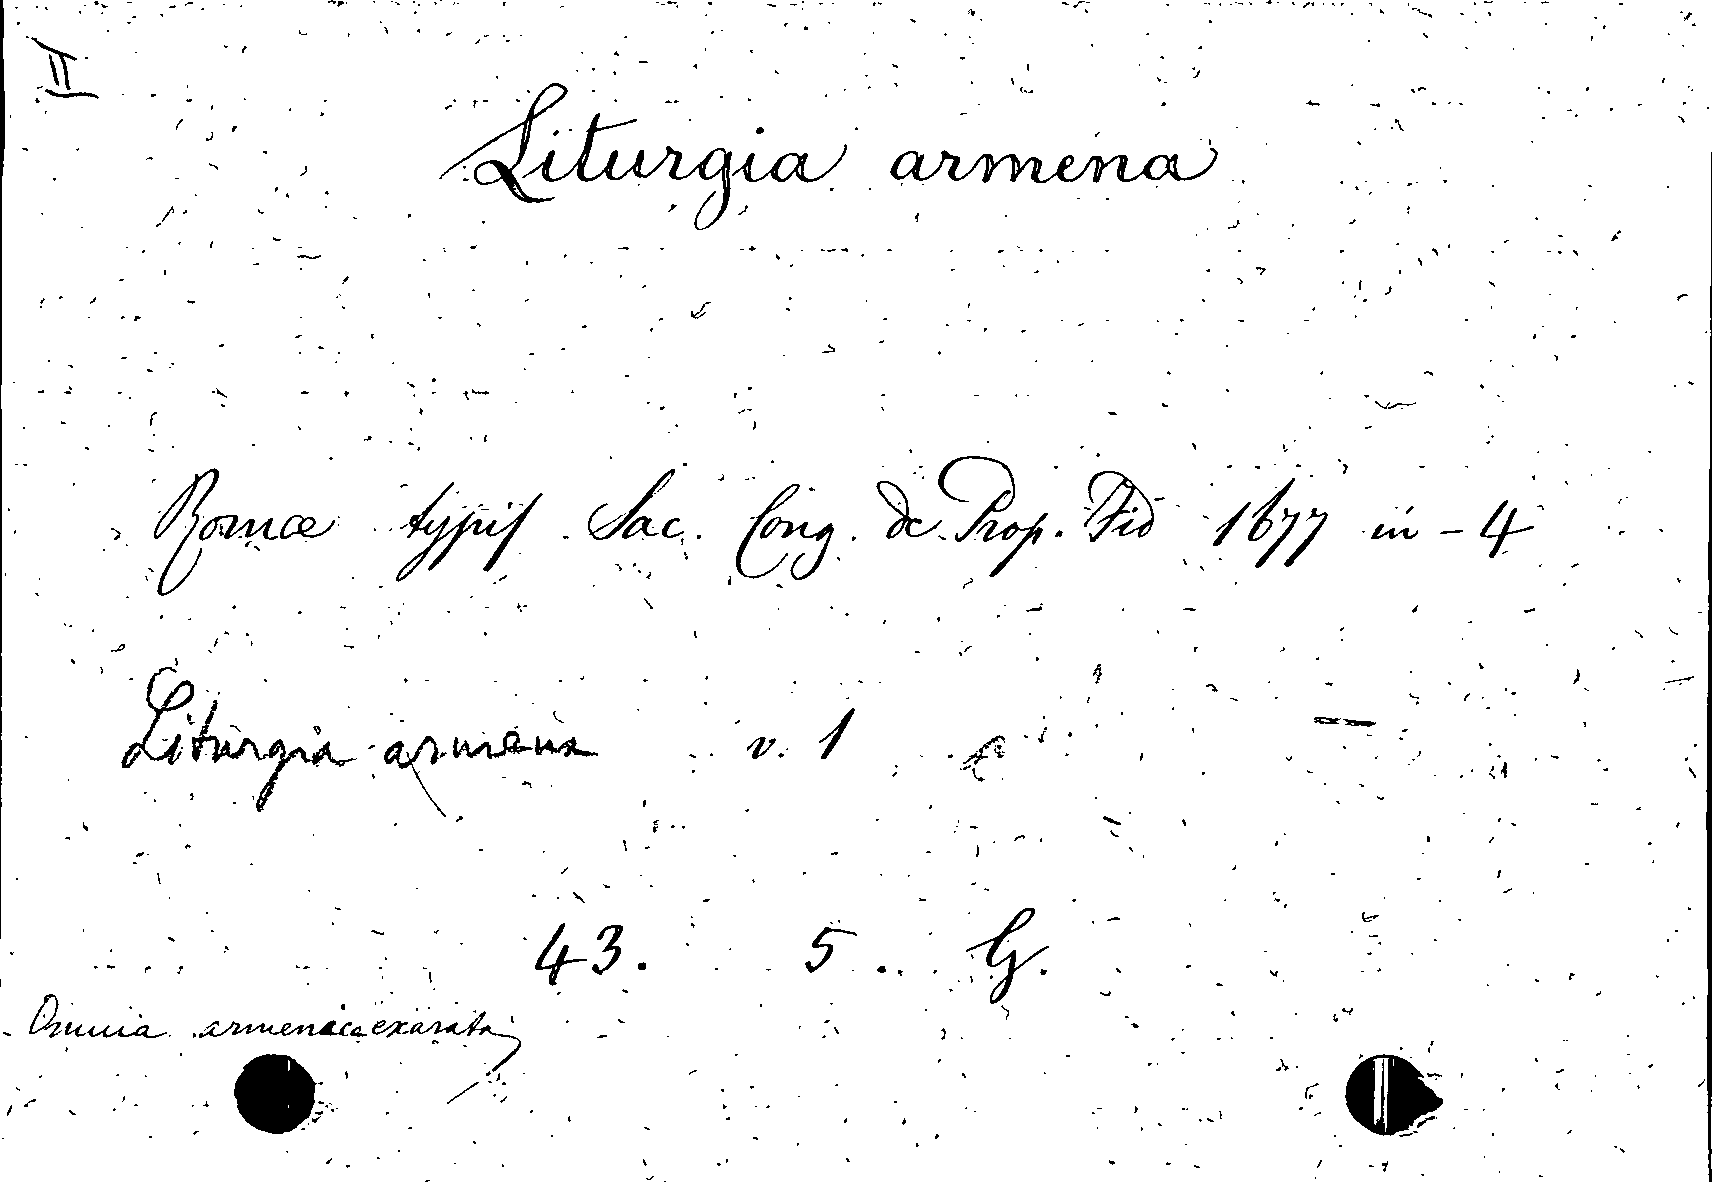 II
Liturgia armena
Romæ typis Sac. Cong. de Prop. Fid 1677 in-4
Liturgia armena v. 1
43. 5. G.
Omnia armenice exarata